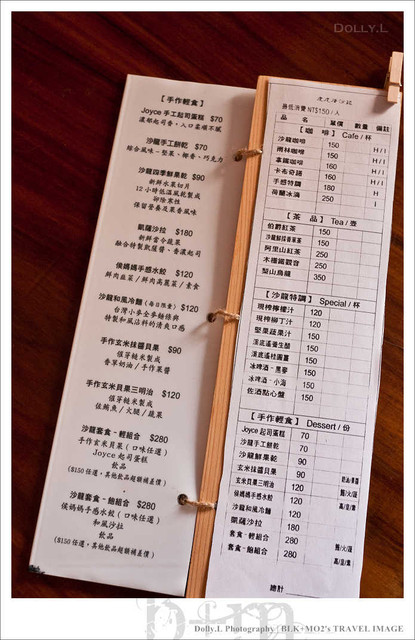 DOLLY.L
【手作輕食】
Joyce 手工起司蛋糕 $70
濃郁起司香，入口柔順不膩
沙龍手工餅乾 $70
綜合風味－堅果、椰香、巧克力
沙龍四季鮮果乾 $90
新鮮水果切片
12小時低溫風乾製成
卻除寒性
保留營養及果香風味
凱薩沙拉 $180
新鮮當令蔬果
融合特製凱薩醬、香濃起司
侯媽媽手感水餃 $120
鮮肉韭菜/鮮肉高麗菜/素食
沙龍和風冷麵（每日限量）$120
台灣小麥全麥麵條與
特製和風沾料的清爽口感
手作玄米抹醬貝果 $90
催芽糙米製成
香草奶油/手作果醬
手作玄米貝果三明治 $120
催芽糙米製成
佐鮪魚/火腿/蔬果
沙龍套食－輕組合 $280
手作玄米貝果（口味任選）
Joyce 起司蛋糕
飲品
($150任選，其他飲品超額補差價)
沙龍套食－飽組合 $280
侯媽媽手感水餃（口味任選）
和風沙拉
飲品
($150任選，其他飲品超額補差價)
最低消費 NT$150/人
品 名 單價 數量 備註
【咖 啡】Cafe/杯
沙龍咖啡 150 H/I
雨林咖啡 150 H/I
拿鐵咖啡 160 H/I
卡布奇諾 160 H/I
手感特調 180 H
荷蘭冰滴 250 I
【茶 品】Tea/壺
伯爵紅茶 150
沙龍鮮採香草茶 250
阿里山紅茶 250
木柵鐵觀音 250
梨山烏龍 350
【沙龍特調】Special/杯
現榨檸檬汁 120
現榨柳丁汁 120
堅果蔬果汁 120
滾底滷養生醋 120
滾底滷桂圓薑 120
冰啤酒－黑麥 120
冰啤酒－小海 120
佐酒點心盤 120
【手作輕食】Dessert/份
Joyce 起司蛋糕 70
沙龍手工餅乾 70
沙龍鮮果乾 90
玄米抹醬貝果 90 奶油/果醬
玄米貝果三明治 120 鮪/火/蔬
侯媽媽手感水餃 120 高/韭/素
沙龍和風冷麵 120
凱薩沙拉 180
套食－輕組合 280 鮪/火/蔬
套食－飽組合 280 高/韭/素
總計
Dolly.L Photography | BLK+MO2's TRAVEL IMAGE